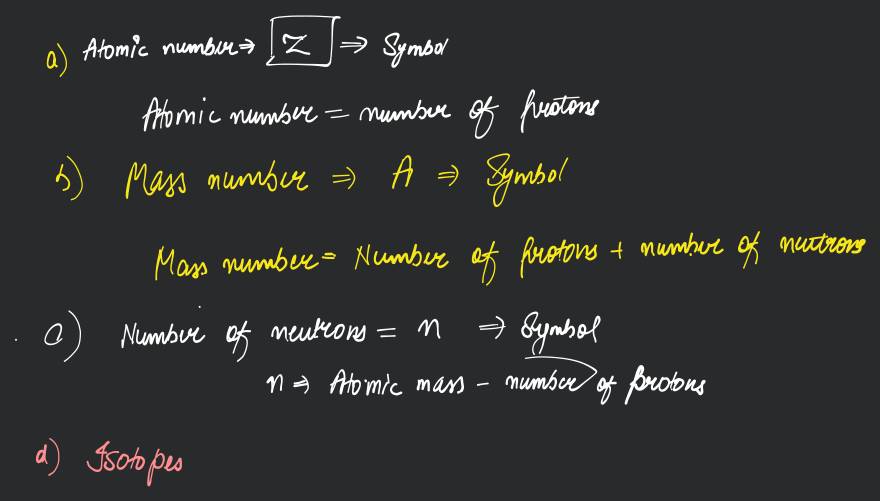 a) Atomic number ⇒ Z ⇒ Symbol
Atomic number = number of protons
b) Mass number ⇒ A ⇒ Symbol
Mass number = Number of protons + number of neutrons
c) Number of neutrons = n ⇒ Symbol
n ⇒ Atomic mass - number of protons
d) Isotopes